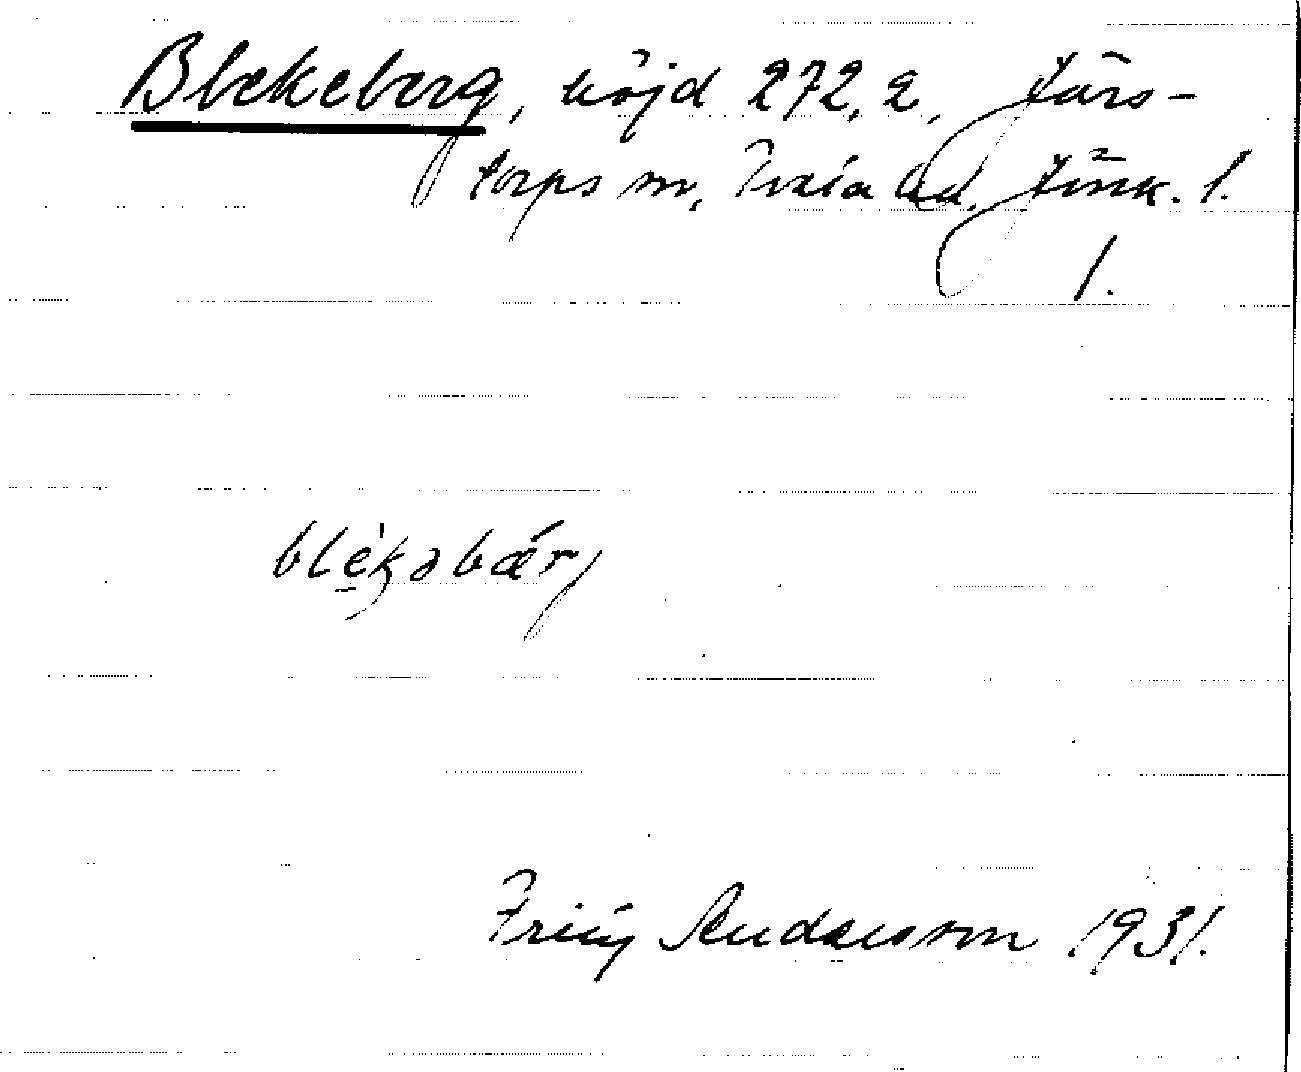 Blekeberg, höjd 272,2, Järs-
torps sn, Tveta hd, Jönk. l.
1.
ble̱kəbær
Frity Andersson 1931.